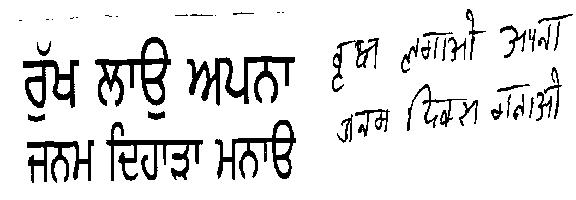 ਰੁੱਖ ਲਾਉ ਅਪਨਾ
ਜਨਮ ਦਿਹਾੜਾ ਮਨਾਓ
वृक्ष लगाओ अपना
जनम दिवस मनाओ